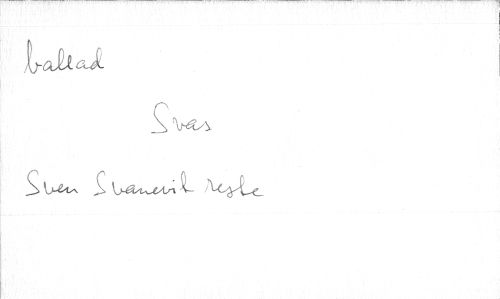 ballad
Svas
Sven Svanevit reste